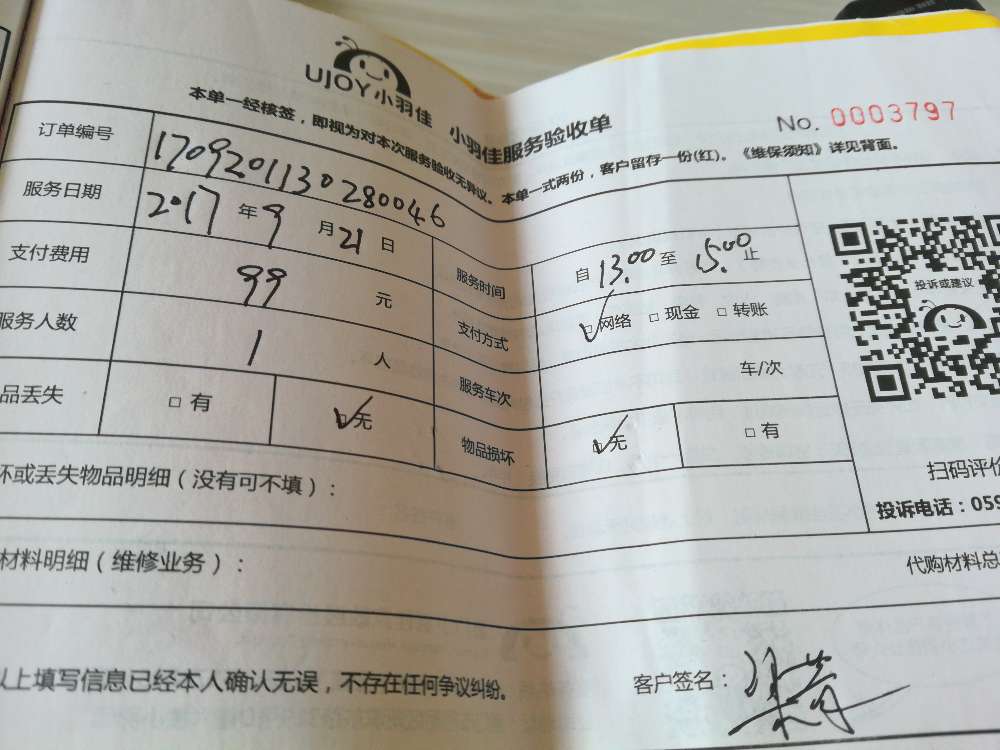 UJOY小羽佳 小羽佳服务验收单
No. 0003797
本单一经核签，即视为对本次服务验收无异议。本单一式两份，客户留存一份(红)。《维保须知》详见背面。
订单编号 1709201130280046
服务日期 2017 年 9 月 21 日 服务时间 自 13.00 至 15.00 止
支付费用 99 元 支付方式 ☑网络 □现金 □转账
服务人数 1 人 服务车次 车/次
品丢失 □有 ☑无 物品损坏 ☑无 □有
投诉或建议
扫码评价
投诉电话：059
坏或丢失物品明细（没有可不填）：
材料明细（维修业务）： 代购材料总
以上填写信息已经本人确认无误，不存在任何争议纠纷。 客户签名：